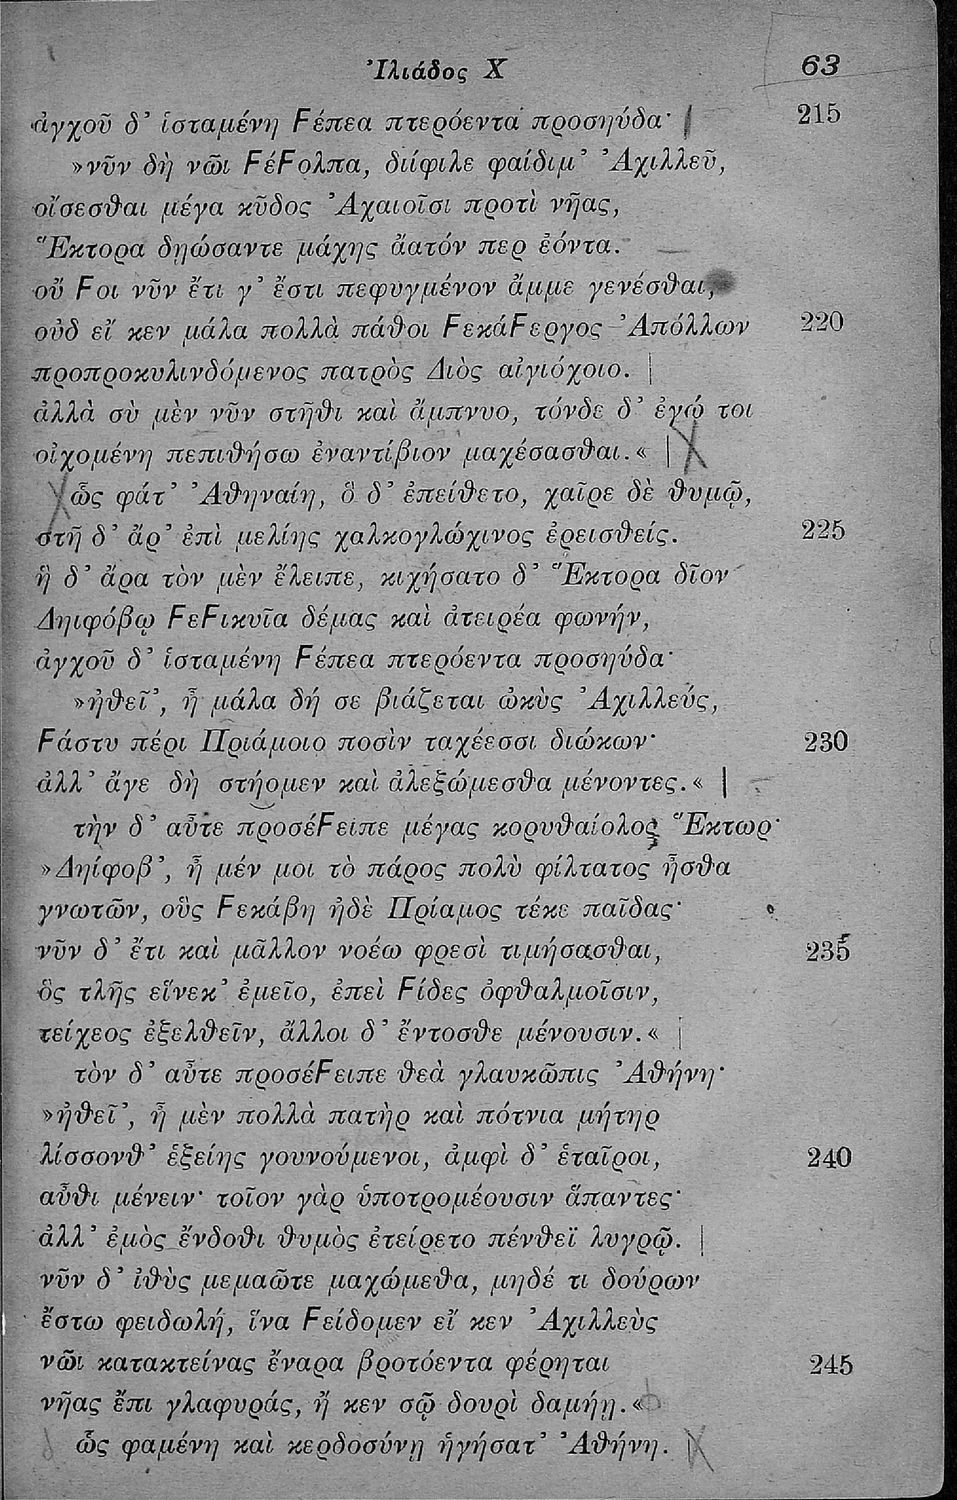 Ἰλιάδος Χ 63
ἀγχοῦ δ᾽ ἱσταμένη Ϝέπεα πτερόεντα προσηύδα· 215
»νῦν δὴ νῶι ϜέϜολπα, διίφιλε φαίδιμ᾽ Ἀχιλλεῦ,
οἴσεσθαι μέγα κῦδος Ἀχαιοῖσι προτὶ νῆας,
Ἕκτορα δηώσαντε μάχης ἄατόν περ ἐόντα.
οὔ Ϝοι νῦν ἔτι γ᾽ ἔστι πεφυγμένον ἄμμε γενέσθαι,
οὐδ εἴ κεν μάλα πολλὰ πάθοι ϜεκάϜεργος Ἀπόλλων 220
προπροκυλινδόμενος πατρὸς Διὸς αἰγιόχοιο.
ἀλλὰ σὺ μὲν νῦν στῆθι καὶ ἄμπνυο, τόνδε δ᾽ ἐγώ τοι
οἰχομένη πεπιθήσω ἐναντίβιον μαχέσασθαι.«
ὣς φάτ᾽ Ἀθηναίη, ὃ δ᾽ ἐπείθετο, χαῖρε δὲ θυμῷ,
στῆ δ᾽ ἄρ᾽ ἐπὶ μελίης χαλκογλώχινος ἐρεισθείς. 225
ἣ δ᾽ ἄρα τὸν μὲν ἔλειπε, κιχήσατο δ᾽ Ἕκτορα δῖον
Δηιφόβῳ ϜεϜικυῖα δέμας καὶ ἀτειρέα φωνήν,
ἀγχοῦ δ᾽ ἱσταμένη Ϝέπεα πτερόεντα προσηύδα·
»ἠθεῖ᾽, ἦ μάλα δή σε βιάζεται ὠκὺς Ἀχιλλεύς,
Ϝάστυ πέρι Πριάμοιο ποσὶν ταχέεσσι διώκων· 230
ἀλλ᾽ ἄγε δὴ στήομεν καὶ ἀλεξώμεσθα μένοντες.«
τὴν δ᾽ αὖτε προσέϜειπε μέγας κορυθαίολος Ἕκτωρ·
»Δηίφοβ᾽, ἦ μέν μοι τὸ πάρος πολὺ φίλτατος ἦσθα
γνωτῶν, οὓς Ϝεκάβη ἠδὲ Πρίαμος τέκε παῖδας·
νῦν δ᾽ ἔτι καὶ μᾶλλον νοέω φρεσὶ τιμήσασθαι, 235
ὃς τλῆς εἵνεκ᾽ ἐμεῖο, ἐπεὶ Ϝίδες ὀφθαλμοῖσιν,
τείχεος ἐξελθεῖν, ἄλλοι δ᾽ ἔντοσθε μένουσιν.«
τὸν δ᾽ αὖτε προσέϜειπε θεὰ γλαυκῶπις Ἀθήνη·
»ἠθεῖ᾽, ἦ μὲν πολλὰ πατὴρ καὶ πότνια μήτηρ
λίσσονθ᾽ ἑξείης γουνούμενοι, ἀμφὶ δ᾽ ἑταῖροι, 240
αὖθι μένειν· τοῖον γὰρ ὑποτρομέουσιν ἅπαντες·
ἀλλ᾽ ἐμὸς ἔνδοθι θυμὸς ἐτείρετο πένθεϊ λυγρῷ.
νῦν δ᾽ ἰθὺς μεμαῶτε μαχώμεθα, μηδέ τι δούρων
ἔστω φειδωλή, ἵνα Ϝείδομεν εἴ κεν Ἀχιλλεὺς
νῶι κατακτείνας ἔναρα βροτόεντα φέρηται 245
νῆας ἔπι γλαφυράς, ἤ κεν σῷ δουρὶ δαμήῃ.«
ὣς φαμένη καὶ κερδοσύνῃ ἡγήσατ᾽ Ἀθήνη.